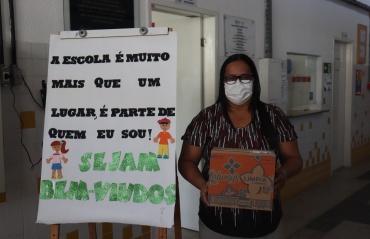 A ESCOLA É MUITO
MAIS QUE UM
LUGAR, É PARTE DE
QUEM EU SOU!
SEJAM
BEM-VINDOS